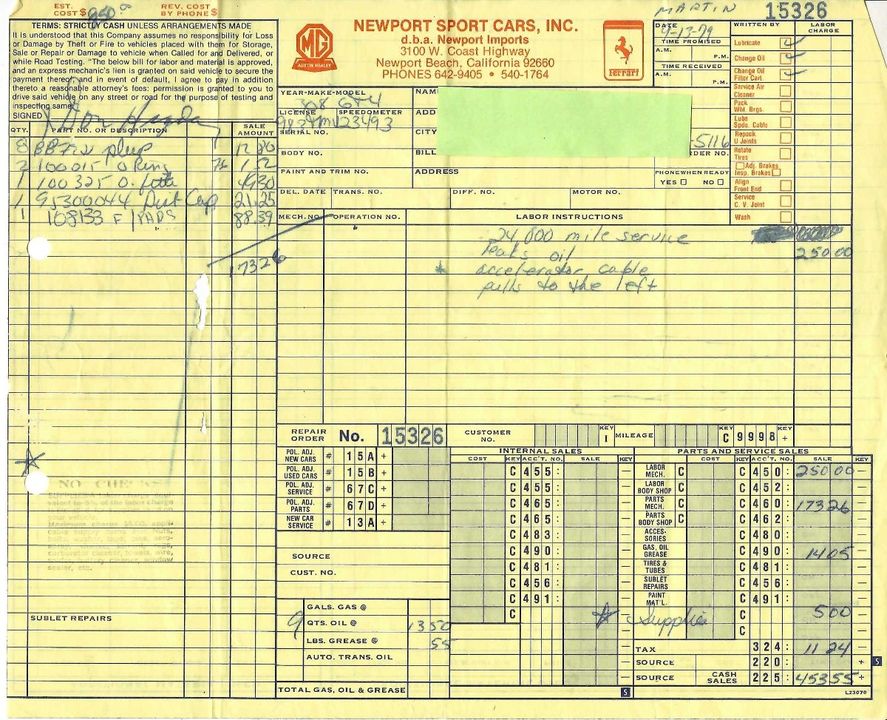 EST. COST $ 850.00 REV. COST BY PHONE $
TERMS: STRICTLY CASH UNLESS ARRANGEMENTS MADE
It is understood that this Company assumes no responsibility for Loss
or Damage by Theft or Fire to vehicles placed with them for Storage,
Sale or Repair or Damage to vehicle when Called for and Delivered, or
while Road Testing. "The below bill for labor and material is approved,
and an express mechanic's lien is granted on said vehicle to secure the
payment thereof and in event of default, I agree to pay in addition
thereto a reasonable attorney's fees: permission is granted to you to
drive said vehicle on any street or road for the purpose of testing and
inspecting same.
SIGNED
MG
AUSTIN HEALEY
NEWPORT SPORT CARS, INC.
d.b.a. Newport Imports
3100 W. Coast Highway
Newport Beach, California 92660
PHONES 642-9405 • 540-1764
Ferrari
MARTIN
15326
DATE 9-13-79
TIME PROMISED
A.M.
P.M.
TIME RECEIVED
A.M.
P.M.
5116
PHONE WHEN READY
YES NO
WRITTEN BY LABOR CHARGE
Lubricate
Change Oil
Change Oil Filter Cart.
Service Air Cleaner
Pack Whl. Brgs.
Lube Spdo. Cable
Repack U Joints
Rotate Tires
Adj. Brakes
Insp. Brakes
Align Front End
Service C. V. Joint
Wash
YEAR-MAKE-MODEL 308 GT4 NAME
LICENSE SPEEDOMETER 23493 ADD
SERIAL NO. CITY
BODY NO. BILL
PAINT AND TRIM NO. ADDRESS
DEL. DATE TRANS. NO. DIFF. NO. MOTOR NO.
MECH. NO. OPERATION NO. LABOR INSTRUCTIONS
QTY. PART NO. OR DESCRIPTION SALE AMOUNT
8 plug 12.80
2 100015 O Ring 76 1.52
1 100325 O. 49.30
1 95300044 Dist Cap 21.25
1 108133 F/PADS 88.39
173 26
24,000 mile service
leaks oil 250 00
* accelerator cable
pulls to the left
NO CHECKS
SUBLET REPAIRS
REPAIR ORDER No. 15326
POL. ADJ. NEW CARS # 15A +
POL. ADJ. USED CARS # 15B +
POL. ADJ. SERVICE # 67C +
POL. ADJ. PARTS # 67D +
NEW CAR SERVICE # 13A +
SOURCE
CUST. NO.
GALS. GAS @
9 QTS. OIL @ 13 50
LBS. GREASE @ 55
AUTO. TRANS. OIL
TOTAL GAS, OIL & GREASE
CUSTOMER NO. KEY I MILEAGE KEY C 9998 +
INTERNAL SALES
COST KEY ACC'T. NO. SALE KEY
C 455: —
C 455: —
C 465: —
C 465: —
C 483: —
C 490: —
C 481: —
C 456: —
C 491: —
C
S
PARTS AND SERVICE SALES
COST KEY ACC'T. NO. SALE KEY
LABOR MECH. C C 450: 250 00 —
LABOR BODY SHOP C C 452: —
PARTS MECH. C C 460: 173 26 —
PARTS BODY SHOP C C 462: —
ACCESSORIES C 480: —
GAS, OIL GREASE C 490: 14 05 —
TIRES & TUBES C 481: —
SUBLET REPAIRS C 456: —
PAINT MAT'L. C 491: —
Supplies C 5 00
C
TAX 324: 11 24 —
SOURCE 220: + S
SOURCE CASH SALES 225: 453 55 +
L23070